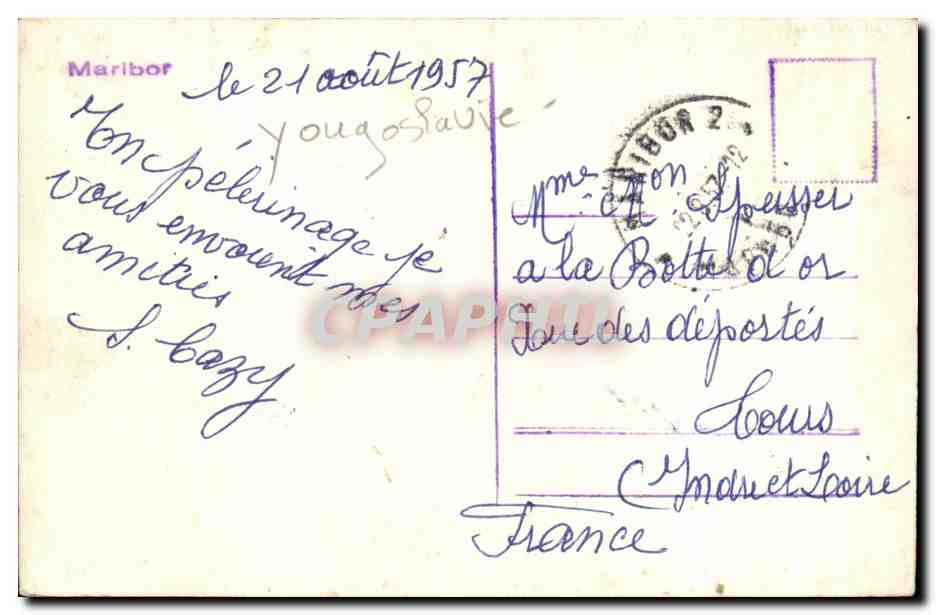 Maribor
le 21 août 1957
yougoslavie
En pélerinage je
vous envoient mes
amitiés
S. Cazy
MARIBOR 2
Mme Mon Speisser
a la Botte d'or
Rue des déportés
Tours
Indre et Loire
France
CPAPHIL